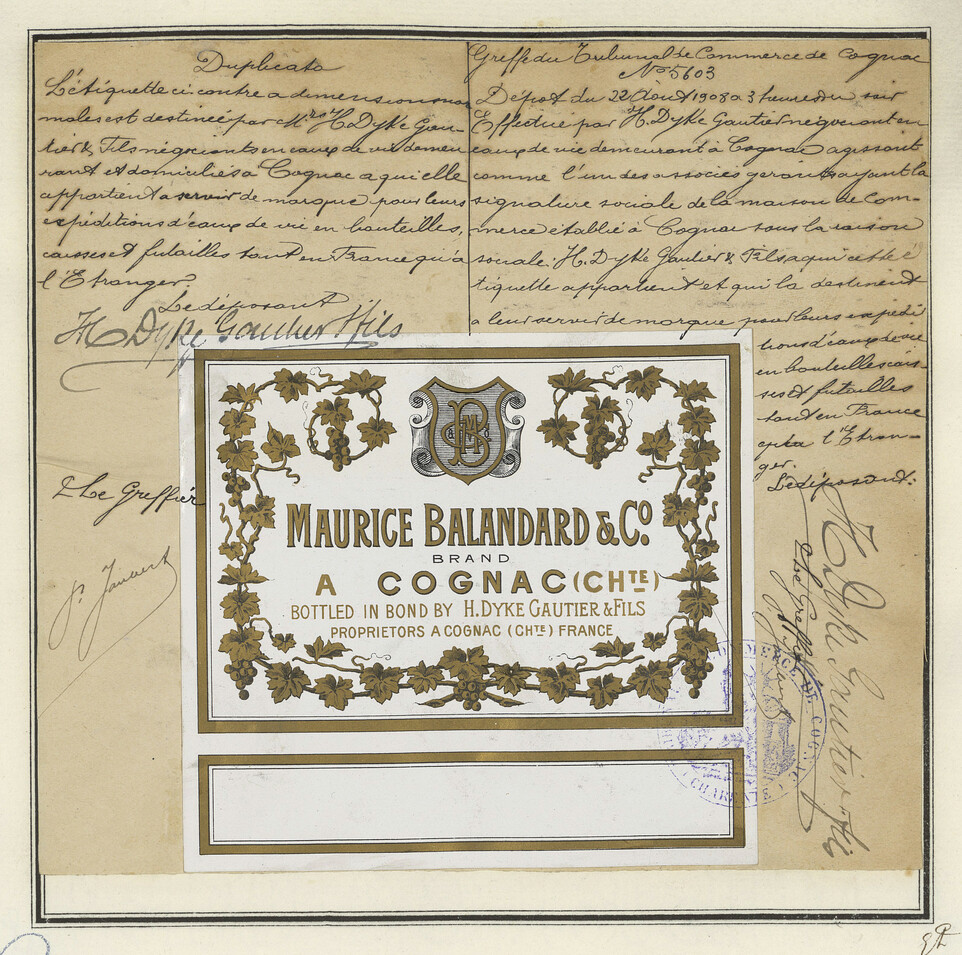 Duplicata
L'étiquette ci contre a dimensions nor
males est destinée par Mrs H. Dyke Gau-
tier & Fils négociants en eaux de vie demeu
rant et domiciliés à Cognac a qui elle
appartient a servir de marque pour leurs
expéditions d'eaux de vie en bouteilles,
caisses et futailles tant en France qu'à
l'Etranger
Le déposant
H Dyke Gautier & fils
Le Greffier
Greffe du Tribunal de Commerce de Cognac
No 5603
Dépot du 22 Aout 1908 a 3 heures du soir
Effectué par H. Dyke Gautier négociant en
eaux de vie demeurant à Cognac agissant
comme l'un des associés gerants ayant la
signature sociale de la maison de Com-
merce établie à Cognac sous la raison
sociale: H. Dyke Gautier & Fils a qui cette é
tiquette appartient et qui la destinent
a leur servir de marque pour leurs expédi
tions d'eaux de vie
en bouteilles cais-
ses et futailles
tant en France
qu'a l'Etran-
ger.
Le déposant:
H Dyke Gautier & fils
Le Greffier
MB & Co
MAURICE BALANDARD & Co.
BRAND
A COGNAC (CHTE)
BOTTLED IN BOND BY H. DYKE GAUTIER & FILS
PROPRIETORS A COGNAC (CHTE) FRANCE
COMMERCE DE COGNAC
(CHARENTE)